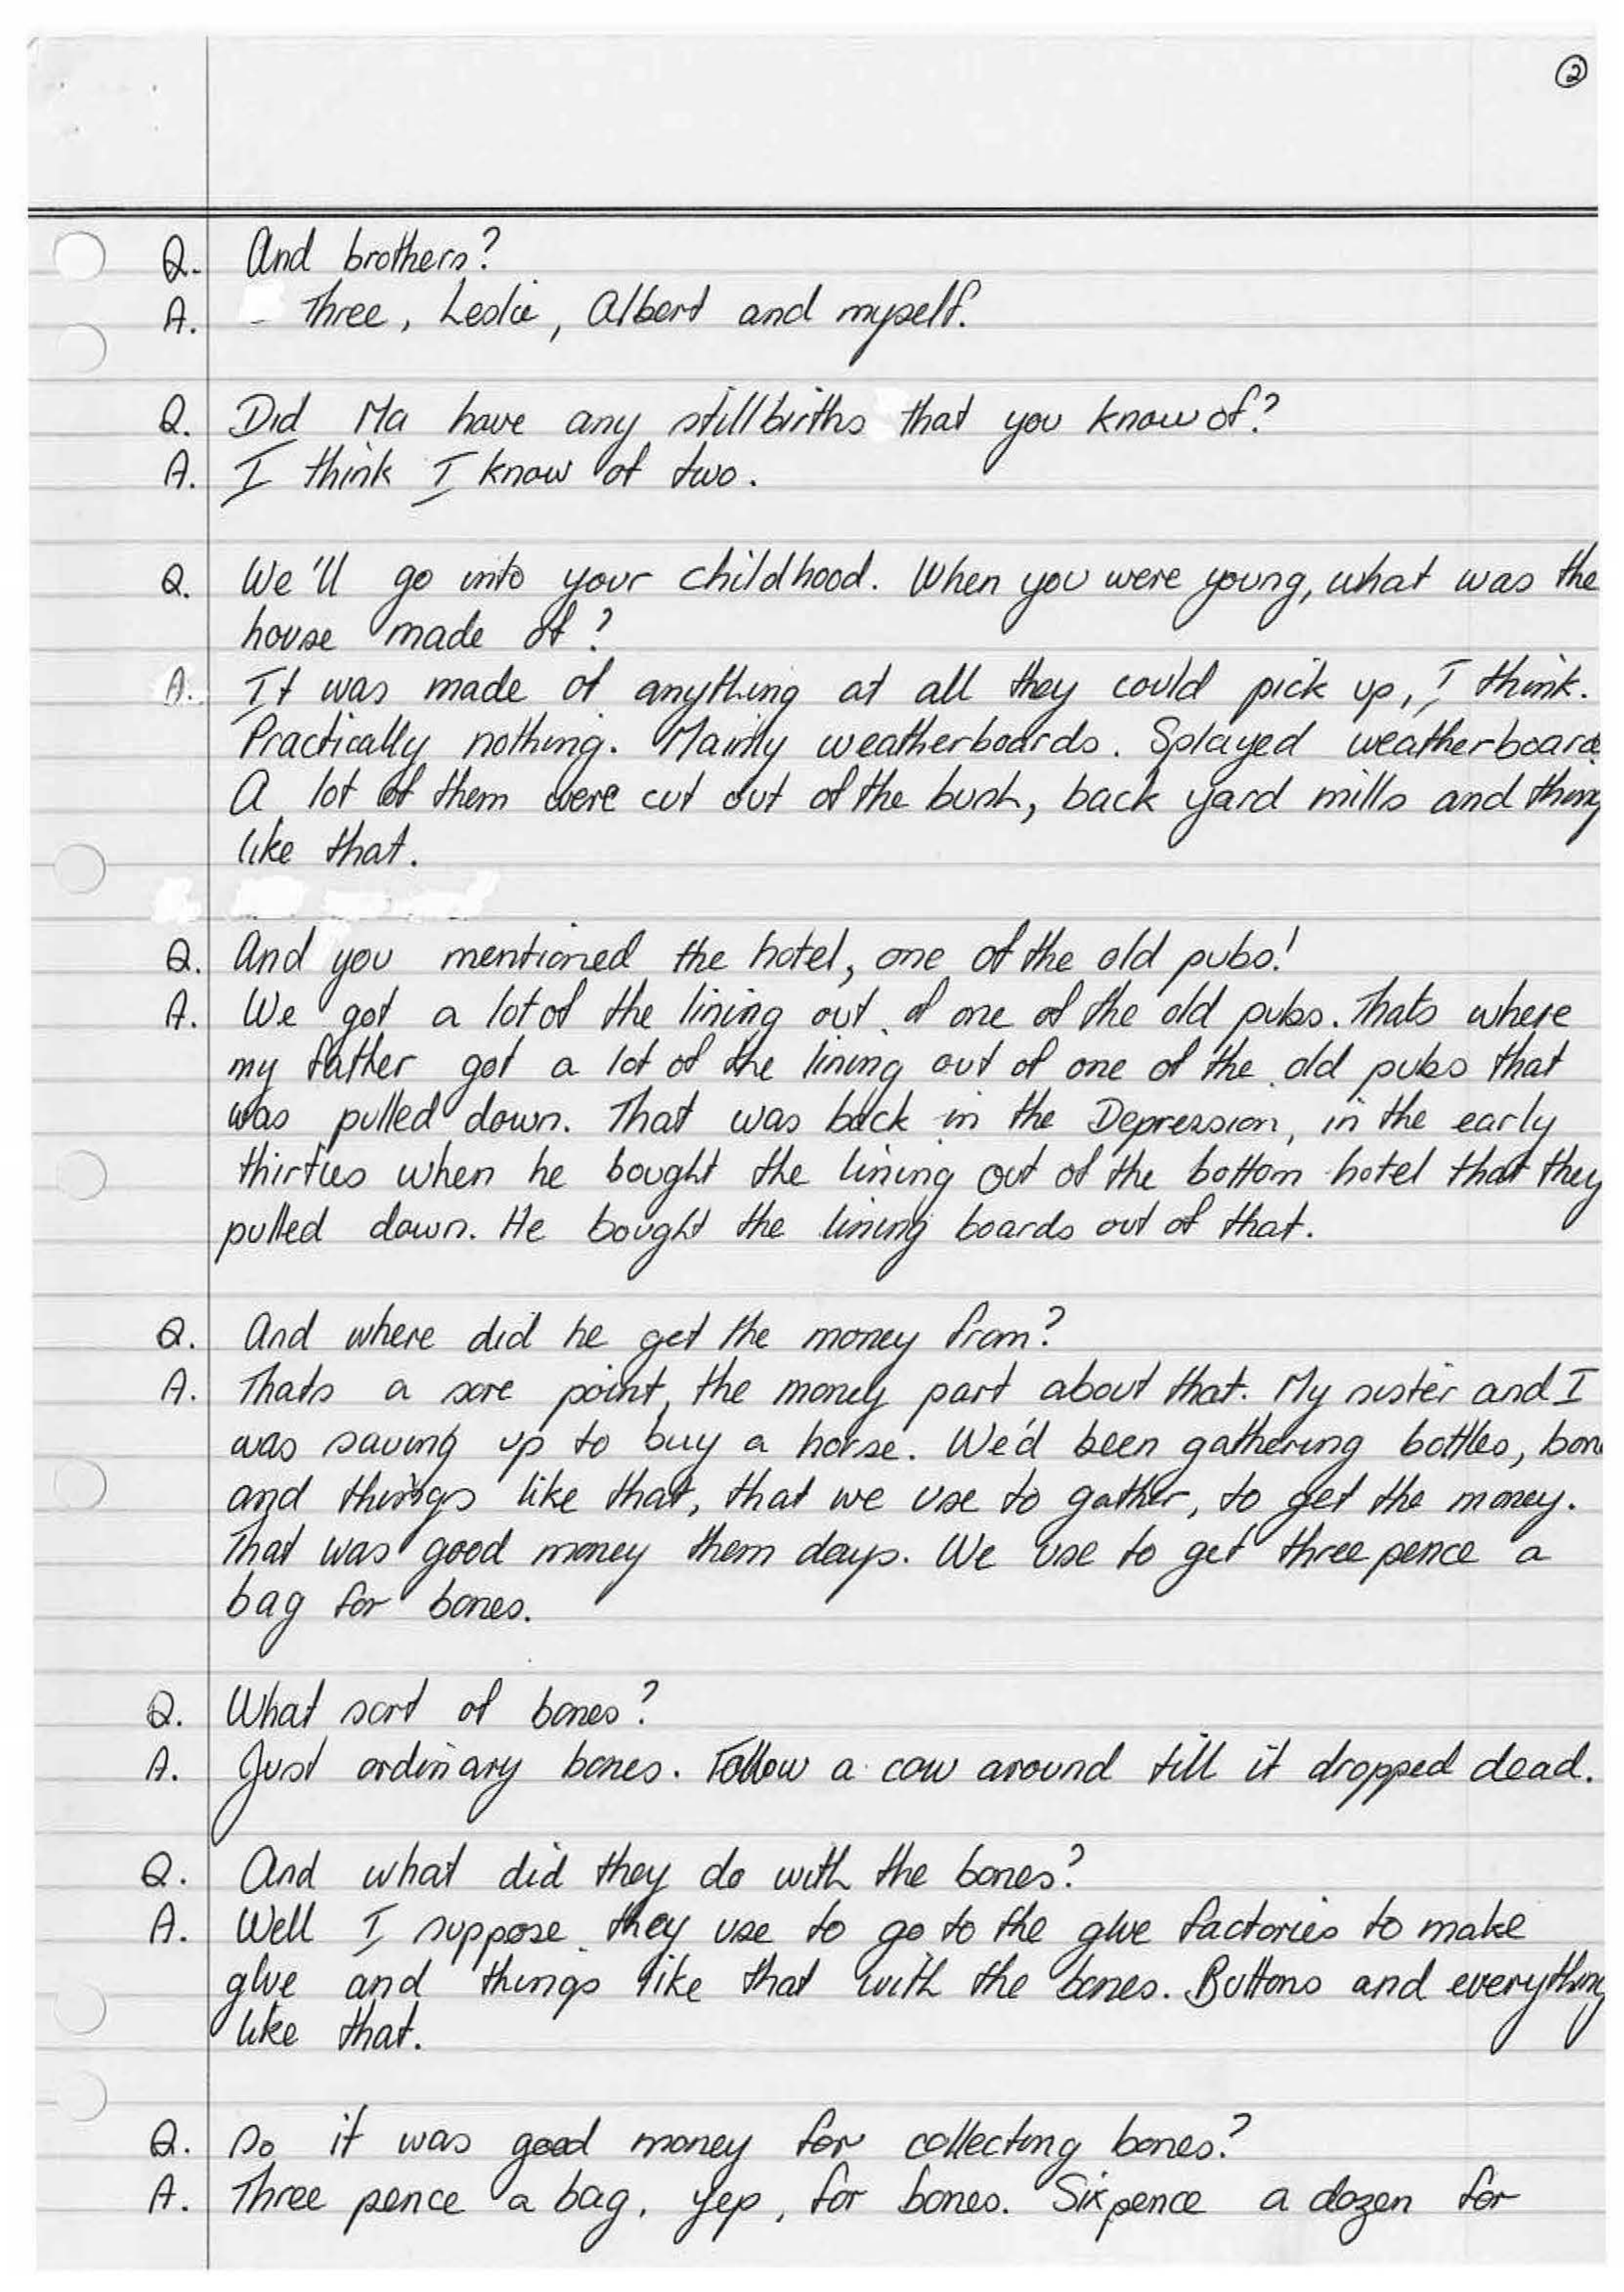 ②
Q. And brothers?
A. Three, Leslie, Albert and myself.
Q. Did Ma have any stillbirths that you know of?
A. I think I know of two.
Q. We'll go into your childhood. When you were young, what was the
house made of?
A. It was made of anything at all they could pick up, I think.
Practically nothing. Mainly weatherboards. Splayed weatherboards.
A lot of them were cut out of the bush, back yard mills and thing
like that.
Q. And you mentioned the hotel, one of the old pubs!
A. We got a lot of the lining out of one of the old pubs. Thats where
my father got a lot of the lining out of one of the old pubs that
was pulled down. That was back in the Depression, in the early
thirties when he bought the lining out of the bottom hotel that they
pulled down. He bought the lining boards out of that.
Q. And where did he get the money from?
A. Thats a sore point, the money part about that. My sister and I
was saving up to buy a horse. We'd been gathering bottles, bon
and things like that, that we use to gather, to get the money.
That was good money them days. We use to get three pence a
bag for bones.
Q. What sort of bones?
A. Just ordinary bones. Follow a cow around till it dropped dead.
Q. And what did they do with the bones?
A. Well I suppose they use to go to the glue factories to make
glue and things like that with the bones. Buttons and everything
like that.
Q. So it was good money for collecting bones?
A. Three pence a bag, yep, for bones. Sixpence a dozen for